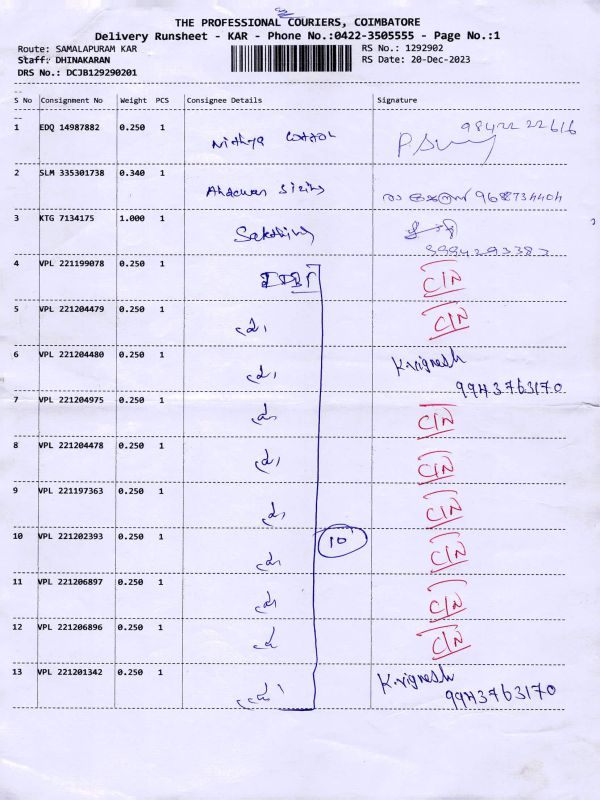 THE PROFESSIONAL COURIERS, COIMBATORE
Delivery Runsheet - KAR - Phone No.:0422-3505555 - Page No.:1
Route: SAMALAPURAM KAR
RS No.: 1292902
Staff: DHINAKARAN
RS Date: 20-Dec-2023
DRS No.: DCJB129290201
S No Consignment No Weight PCS Consignee Details Signature
1 EDQ 14987882 0.250 1 Nithya cotton 98422 22616
2 SLM 335301738 0.340 1 Sizing
3 KTG 7134175 1.000 1
4 VPL 221199078 0.250 1 IDBI C/N
5 VPL 221204479 0.250 1 C/N
6 VPL 221204480 0.250 1 K.vignesh
9943763170
7 VPL 221204975 0.250 1 C/N
8 VPL 221204478 0.250 1 C/N
9 VPL 221197363 0.250 1 C/N
10 VPL 221202393 0.250 1 10 C/N
11 VPL 221206897 0.250 1 C/N
12 VPL 221206896 0.250 1 C/N
13 VPL 221201342 0.250 1 K.vignesh
9943763170